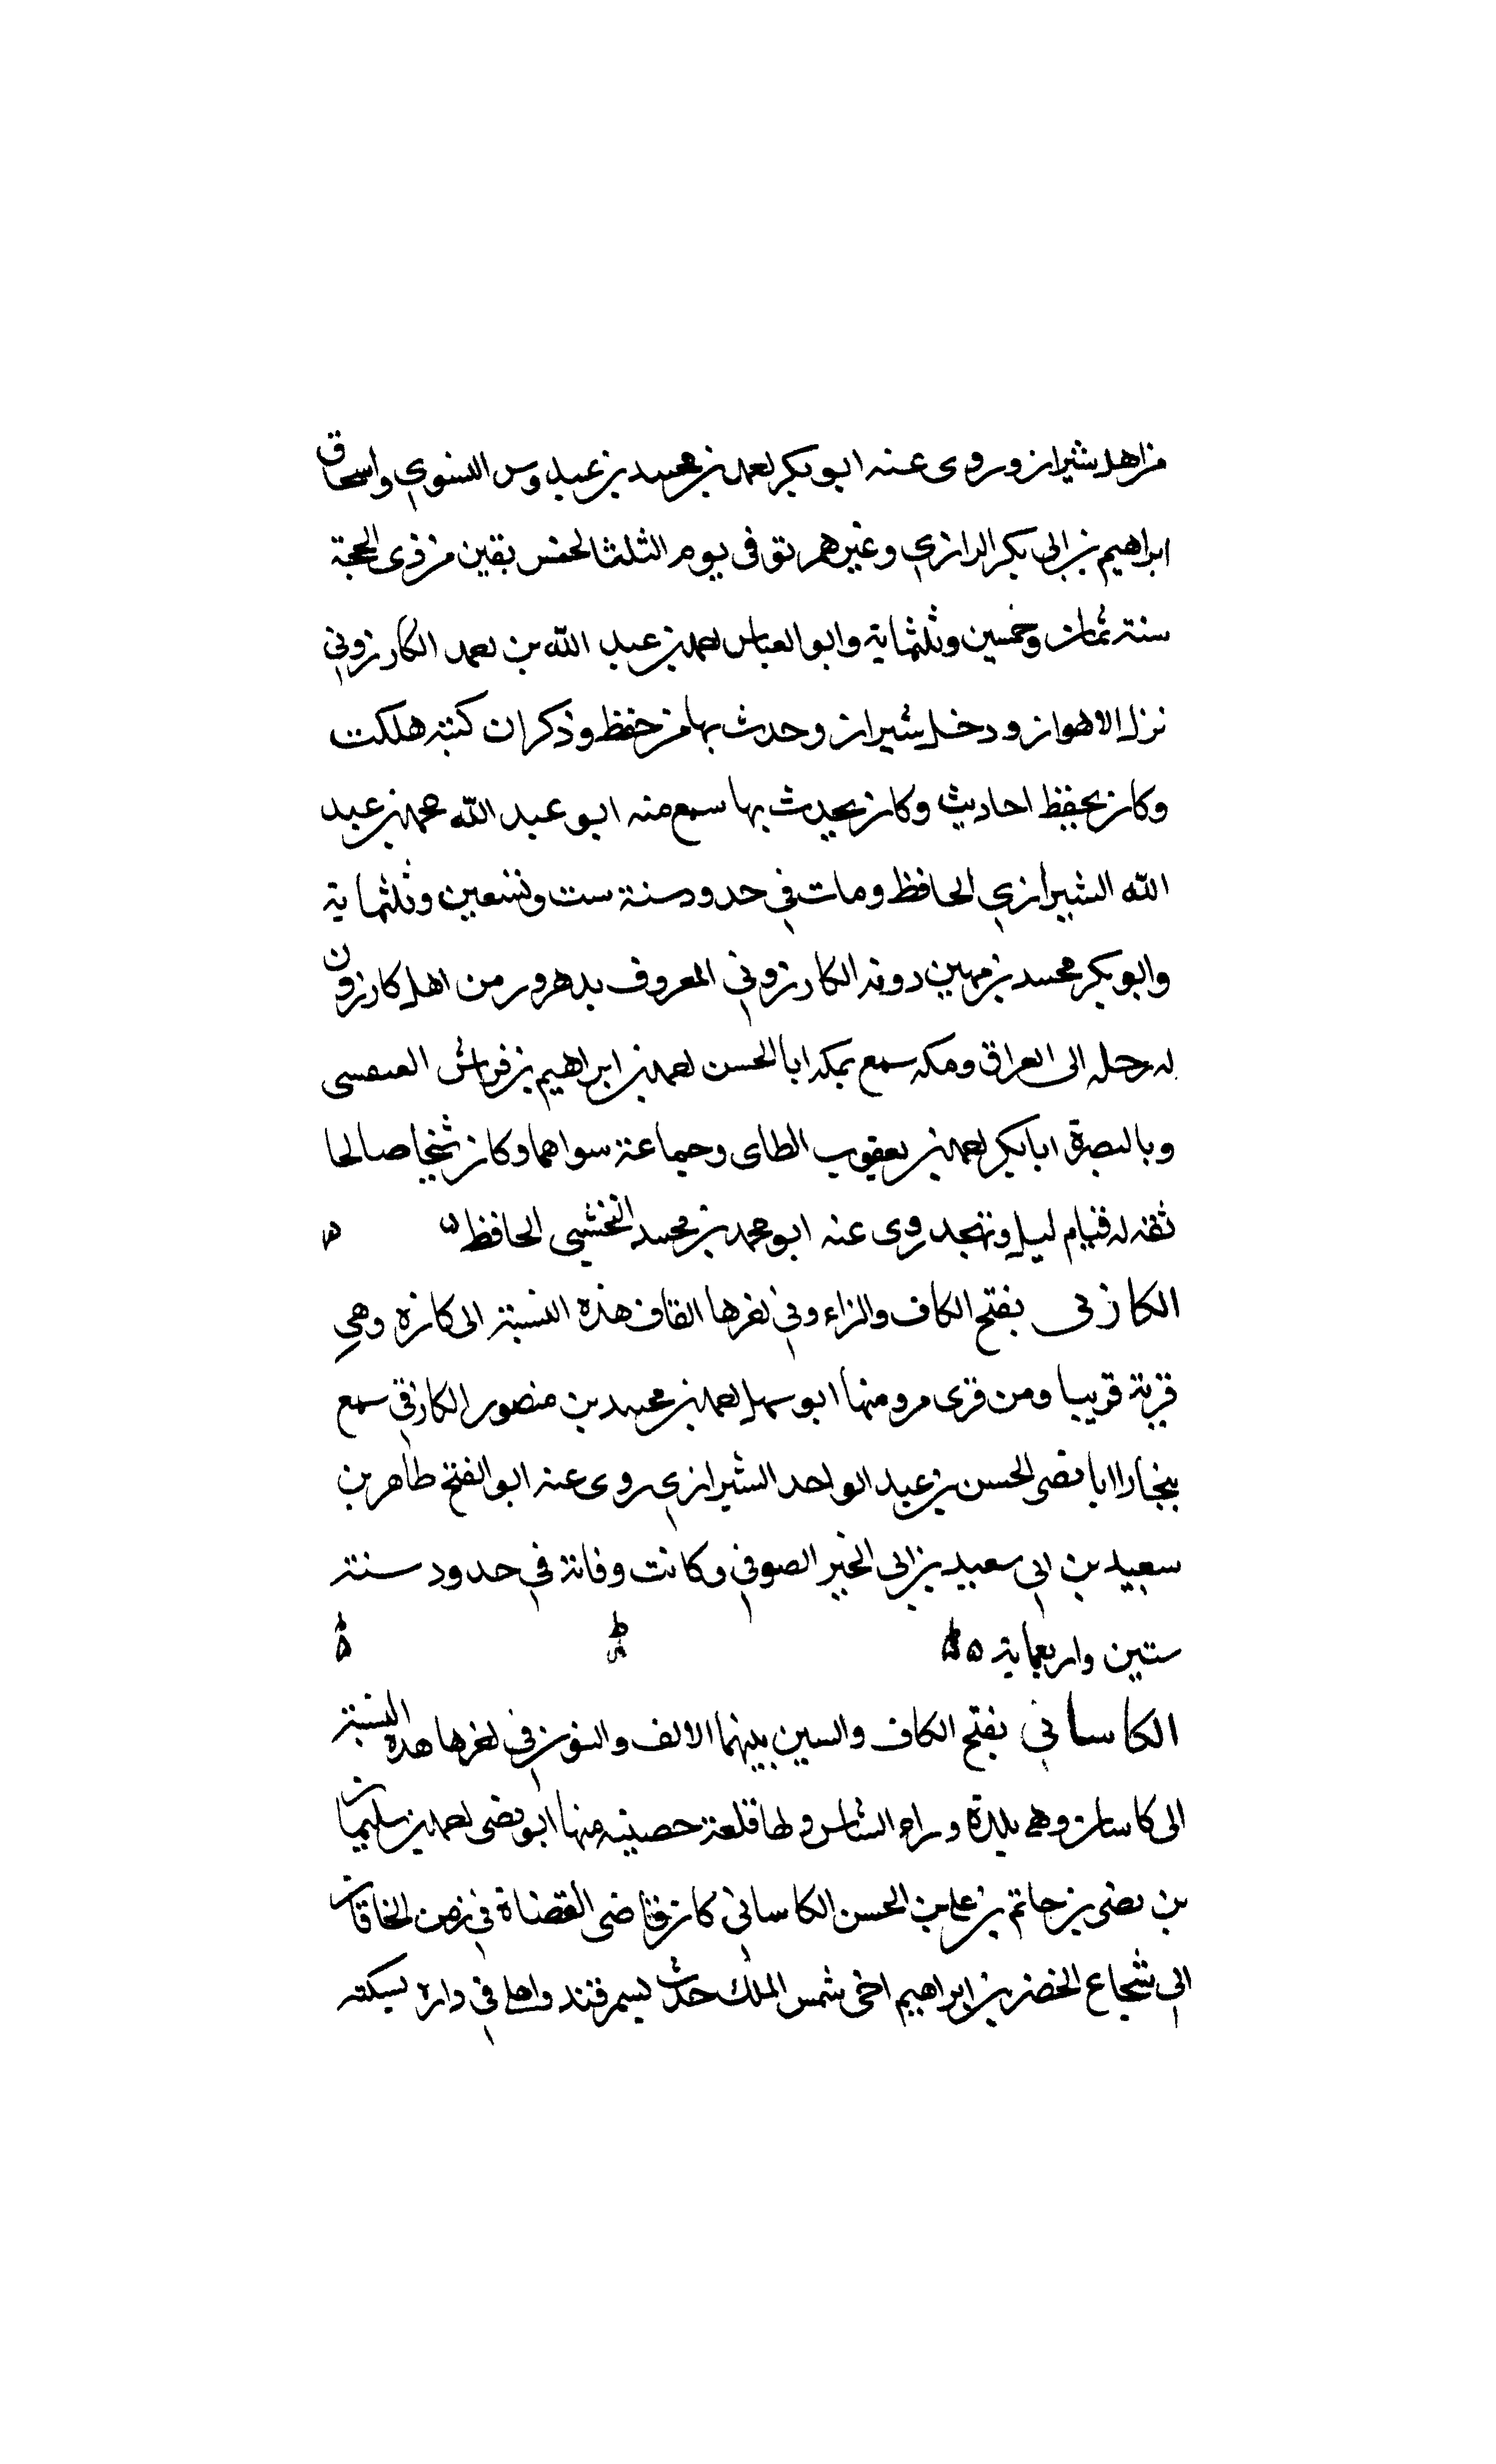 من اهل شيراز وروى عنه ابو بكر احمد بن محمد بن عبدوس النسوي واسحاق
ابراهيم بن ابى بكر الرازي وغيرهم توفى يوم الثلثا لخمس بقين من ذى الحجة
سنة ثمان وخمسين وثلثماية وابو العباس احمد بن عبد الله بن احمد الكازروني
نزل الاهواز ودخل شيراز وحدث بها من حفظ وذكر ان كتبه هلكت
وكان يحفظ احاديث وكان يحدث بها سمع منه ابو عبد الله محمد بن عبد
الله الشيرازي الحافظ ومات في حدود سنة ست وتسعين وثلثماية
وابو بكر محمد بن دونه الكازروني المعروف بدهرور من اهل كازرون
له رحله الى العراق ومكه سمع بمكه ابا الحسن احمد بن ابراهيم بن فراش العبقسى
وبالبصرة ابا بكر احمد بن يعقوب الطاى وجماعة سواهما وكان شيخا صالحا
ثقه له قيام ليل وتهجد روى عنه ابو محمد بن محمد النخشبي الحافظ ه ه
الكازقى بفتح الكاف والزاء وفي اخرها القاف هذه النسبة الى كازه وهي
قرية قريبا ومن قرى مرو منها ابو سهل احمد بن محمد بن منصور الكازقي سمع
ببخارا ابا نصر الحسن بن عبد الواحد الشيرازي روى عنه ابو الفتح طاهر بن
سعيد بن ابي سعيد بن ابى الخير الصوفي وكانت وفاته في حدود سنة
ستين واربعماية ه
الكاساني بفتح الكاف والسين بينهما الالف والنون في اخرها هذه النسبة
الى كاسان وهى بلدة وراء الشاس ولها قلعة حصينه منها ابو نصر احمد بن سليمان
بن نصر بن حاتم بن على بن الحسن الكاساني كان قاضى القضاة في زمن الخاقان
ابي شجاع الخضر بن ابراهيم اخى شمس الملك حدث بسمرقند واملى في داره بسكة